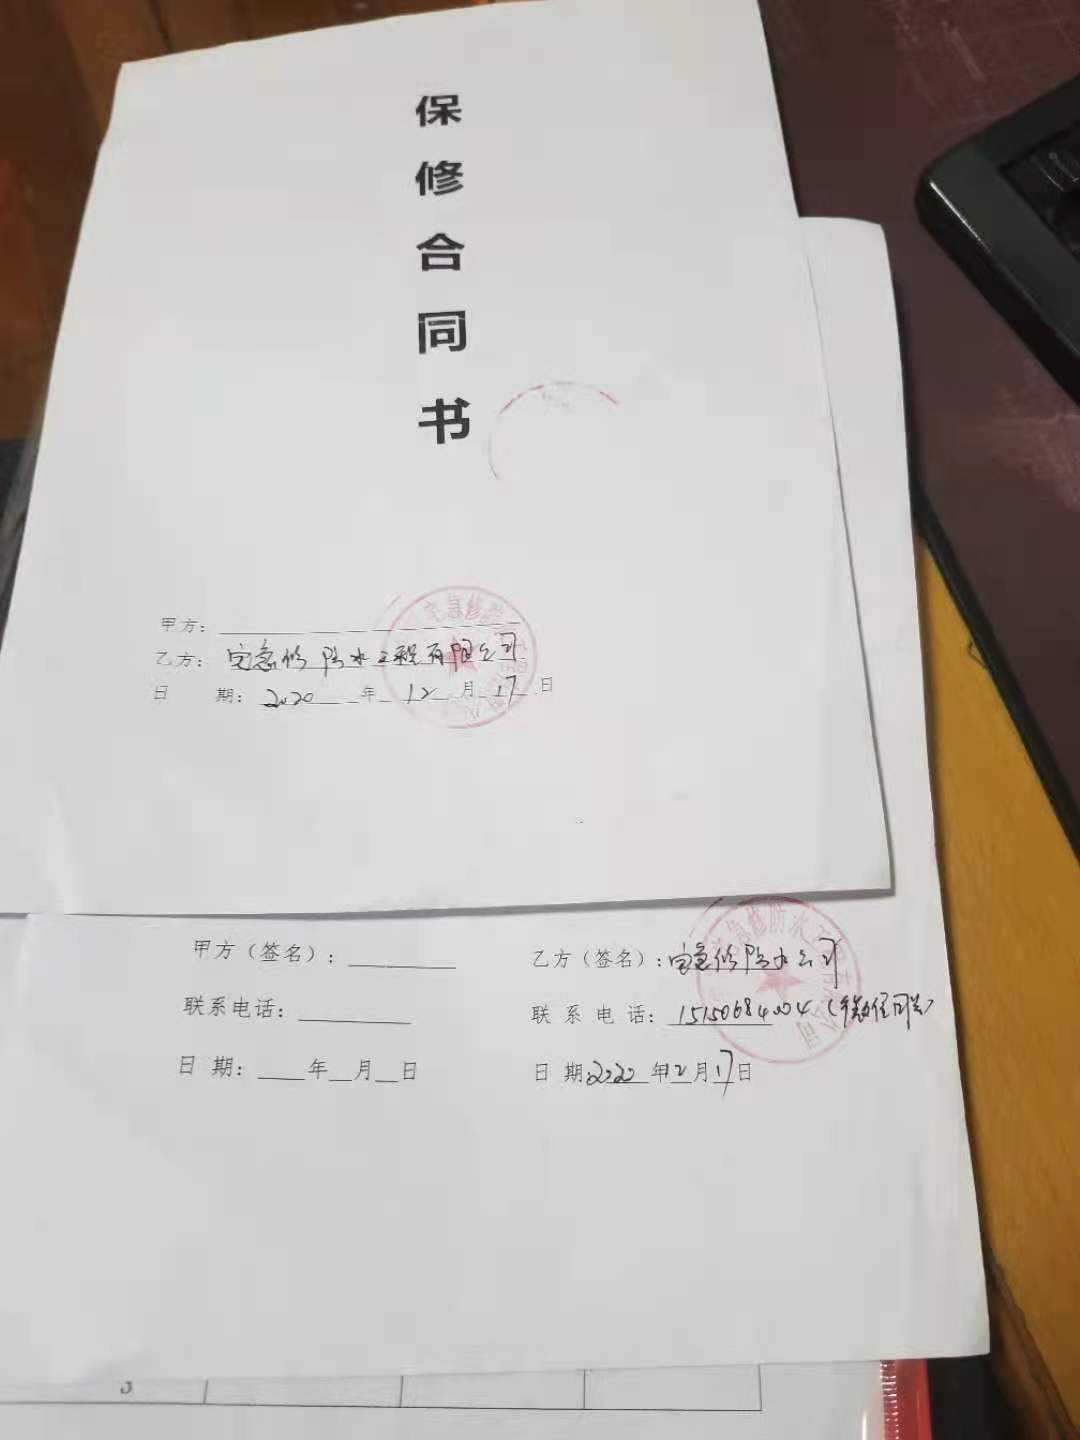 保
修
合
同
书
甲方：
乙方：宅急修防水工程有限公司
日 期：2020 年 12 月 17 日
甲方（签名）：
乙方（签名）：宅急修防水公司
联系电话：
联 系 电 话：15150684004（微信同号）
日 期： 年 月 日
日 期2020年12月17日
急修防水工
3